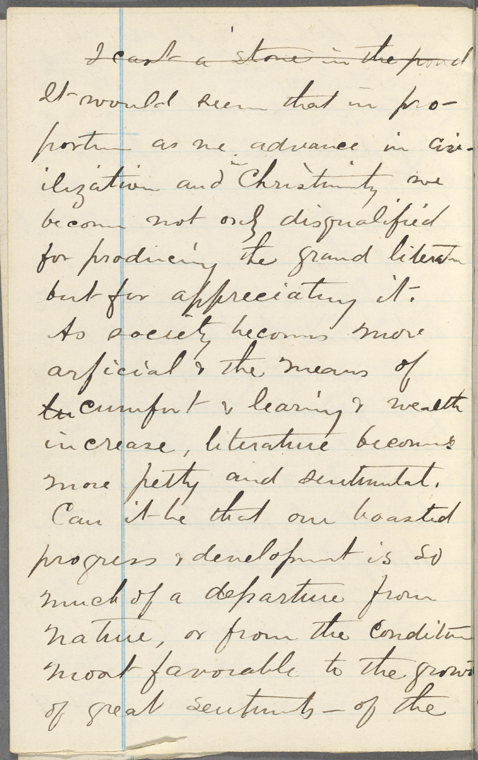 I cast a stone in the pond
It would seem that in pro-
portion as we advance in civ-
ilization and in Christinity we
become not only disqualified
for producing the grand literatu
but for appreciating it.
As society becomes more
arficial & the means of
cumfort & learing & wealth
increase, literature becomes
more petty and sentimental.
Can it be that our boasted
progress & development is so
much of a departure from
nature, or from the condition
most favorable to the grow
of great sentiments – of the